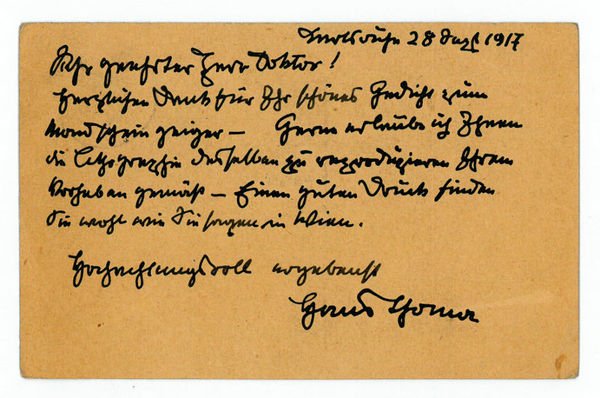 Karlsruhe 28 Dezb 1917
Sehr geehrter Herr Doktor!
Herzlichen Dank für Ihr schönes Gedicht zum
Mondscheingeiger — Gerne erlaube ich Ihnen
die Lithographie desselben zu reproduzieren Ihrem
Vorhaben gemäß — Einen guten Druck finden
Sie wohl wie Sie sagen in Wien.
Hochachtungsvoll ergebenst
Hans Thoma